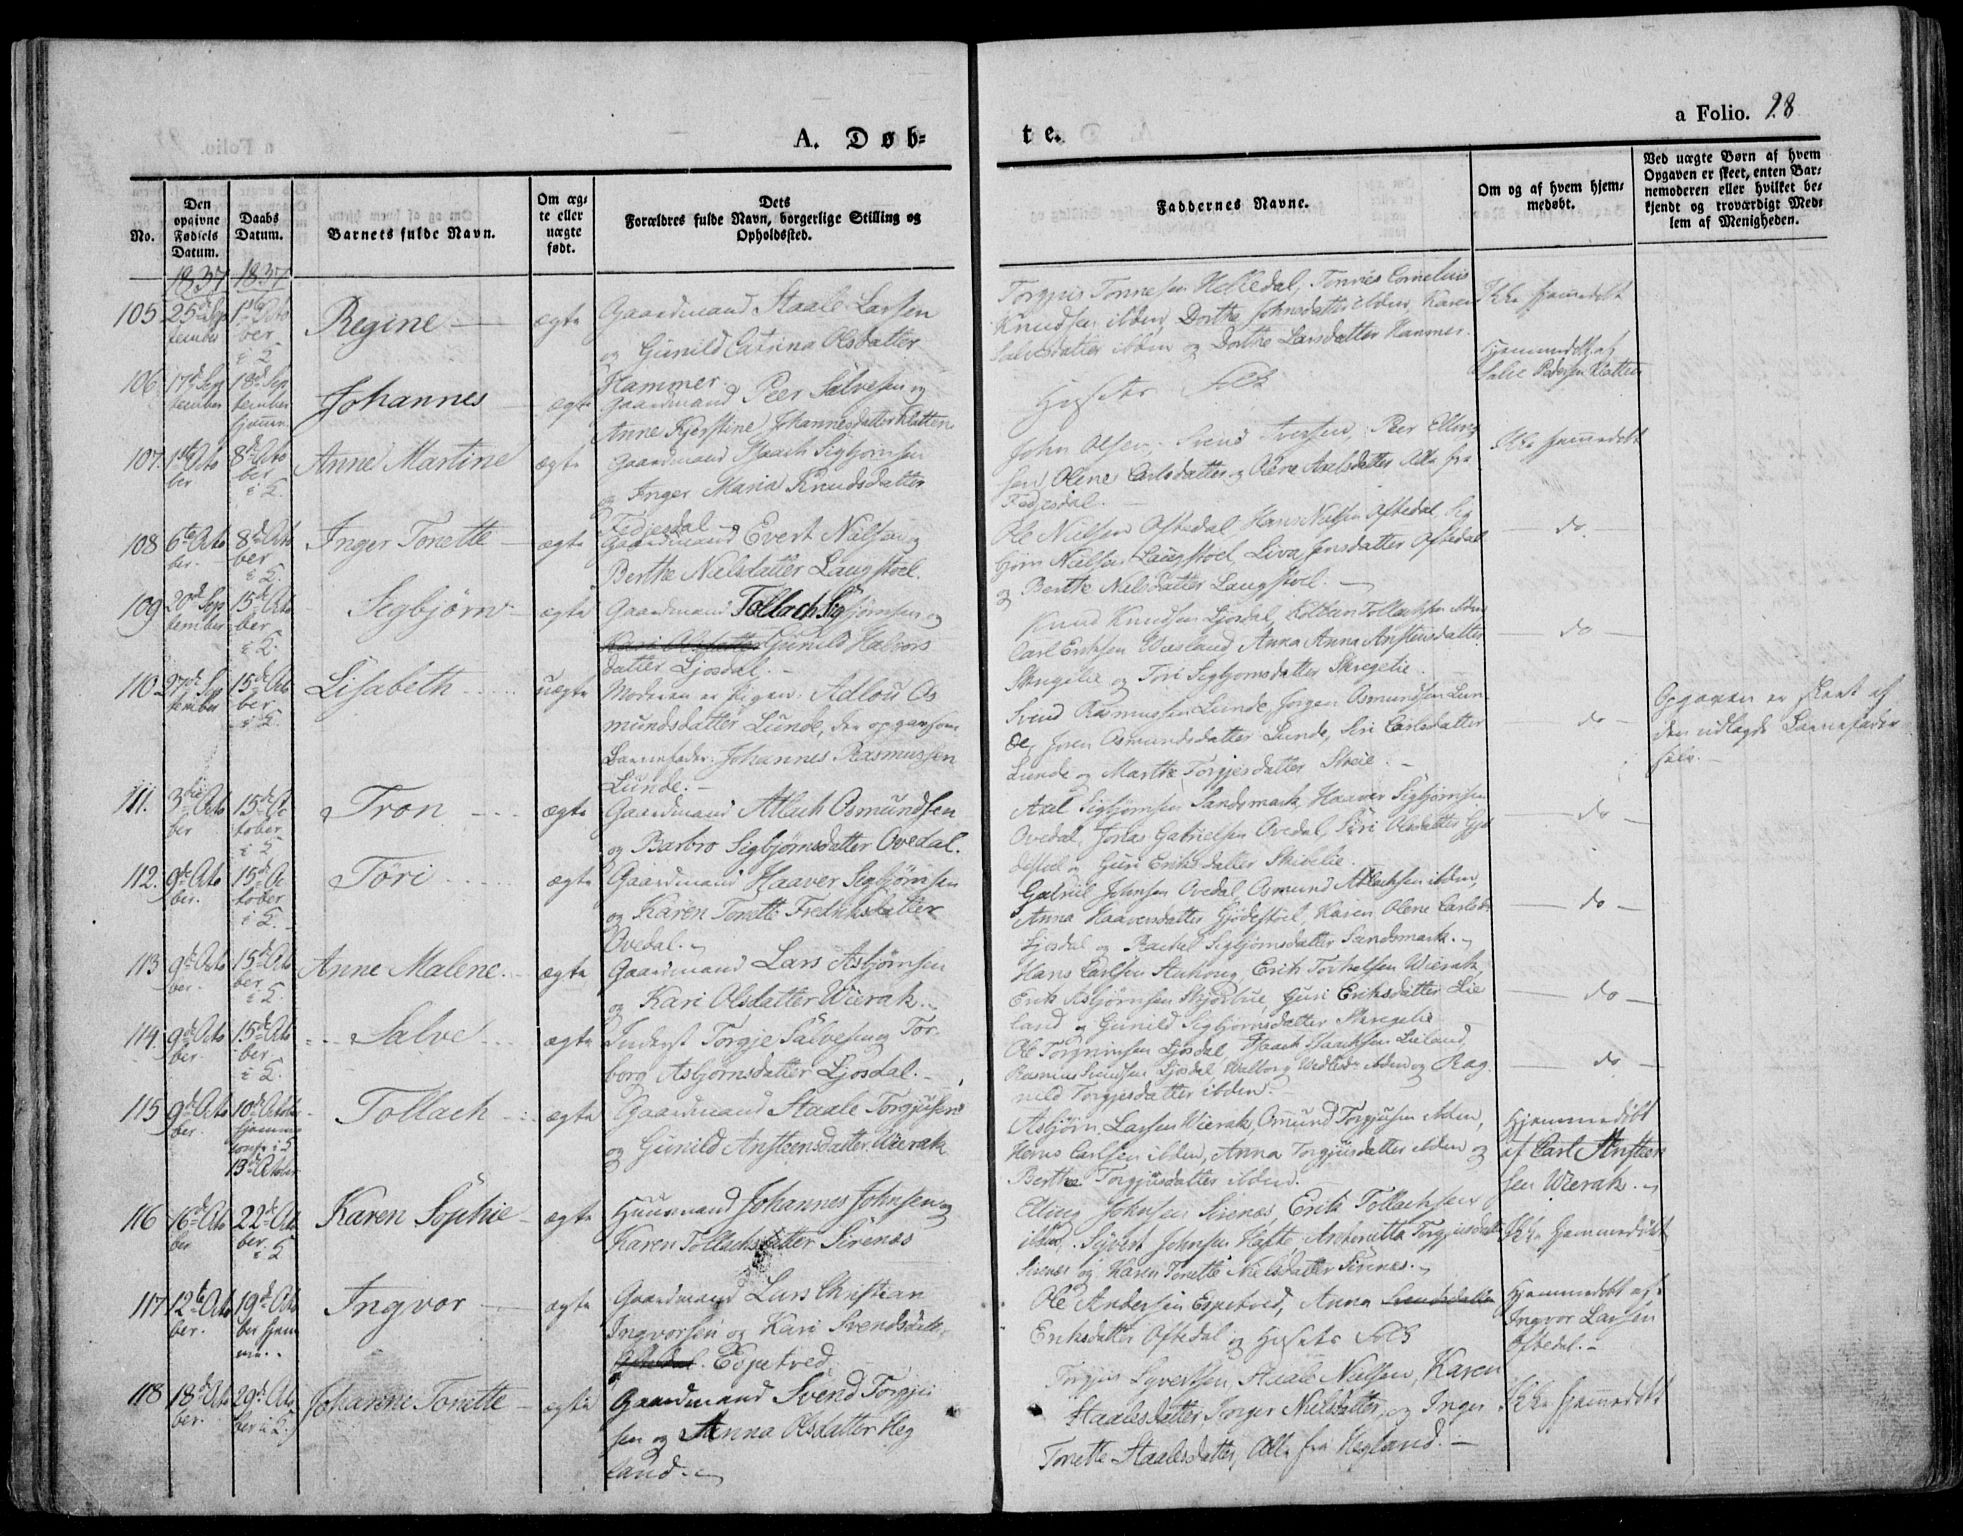 a Folio. 28
A. Døb-
te.
No.
Den opgivne Fødsels Datum.
Daabs Datum.
Barnets fulde Navn.
Om ægte eller uægte født.
Dets Forældres fulde Navn, borgerlige Stilling og Opholdssted.
Faddernes Navne.
Om og af hvem hjemmedøbt.
Ved uægte Børn af hvem Opgaven er skeet, enten Barnemoderen eller hvilket bekjendt og troværdigt Medlem af Menigheden.
1837 1837
105 25de September 1ste Octo Regine ægte Gaardmand Staale Larsen
ber i K og Gunild Catrina Olsdatter
Hammer
Torgjus Tonnesen Helledal, Tonnes Cornelius
Knudsen ibden, Dorthe Johnsdatter ibden, Karen
Salvesdatter ibden og Dorthe Larsdatter Hammer.
Ikke hjemmedøbt
106 17de September 18de September hjemme Johannes ægte Gaardmand Peer Salvesen og
Anne Kjerstine Johannesdatter Klatten
Husets Folk
Hjemmedøbt af
Salve Pedersen Klatten
107 1ste Octo 8de Octo Anne Martine ægte Gaardmand Isaach Sigbjørnsen
ber ber i K. og Inger Maria Knudsdatter
Fedjesdal
John Olsen, Svend Iversen, Peer Elling
sen, Olene Carlsdatter og Olene Axelsdatter Alle fra
Fedjesdal.
Ikke hjemmedøbt
108 6te Octo 8de Octo Inger Tonette ægte Gaardmand Evert Nilsen og
ber. ber i K. Berthe Nielsdatter Laugstoel.
Ole Nielsen Oftedal, Hans Nielsen Oftedal, Sig
bjørn Nielsen Laugstoel, Liva Jensdatter Oftedal
og Berthe Nielsdatter Laugstoel.
do.
109 20de Sep 15de Octo Segbjørn ægte Gaardmand Tollach Sigbjørnsen og
tember ber i K. Kari Olsdatter Gunild Halvors
datter Ljosdal.
Knud Knudsen Ljosdal, Tollach Tollachsen ibden
Carl Eriksen Wiesland, Anna Anna Anstensdatter
Skregelie og Tori Segbjørnsdatter Skregelie.
do
110 27de Sep 15de Octo Lisabeth uægte Moderen er Pigen: Adlou Os
tember ber i K. mundsdatter Lunde, den opgivne
Barnefader: Johannes Rasmussen
Lunde.
Svend Rasmussen Lunde, Jørgen Osmundsen Lun
de, Joren Osmundsdatter Lunde, Siri Carlsdatter
Lunde og Marthe Torgjesdatter Skeie.
do
Opgaven er skeet af
den udlagde Barnefader
selv.
111. 3die Octo 15de Oc Tron ægte Gaardmand Atlach Osmundsen
ber tober i K og Barbro Segbjørnsdatter Ovedal.
Axel Sigbjørnsen Sandsmark, Haaver Sigbjørnsen
Ovedal, Jonas Gabrielsen Ovedal, Siri Olsdatter Gjø
destoel og Guri Eriksdatter Skibelie.
do
112. 9de Octo 15de Oc Tori ægte Gaardmand Haaver Segbjørnsen
ber. tober i K. og Karen Tonette Fredriksdatter
Ovedal.
Gabriel Johnsen Ovedal, Osmund Atlachsen ibden,
Anna Haaversdatter Gjødestoel, Karen Olene Carlsd.
Ljosdal og Rachel Segbjørnsdatter Sandsmark.
do
113 9de Octo 15de Octo Anne Malene. ægte Gaardmand Lars Asbjørnsen
ber. ber i K. og Kari Olsdatter Wierak.
Hans Carlsen Stuhoug, Erik Torkelsen Wierak,
Erik Asbjørnsen Skjerlue, Guri Eriksdatter Lie
land og Gunild Segbjørnsdatter Skregelie
do
114. 9de Octo 15de Octo Salve ægte Inderst Torgje Salvesen og Tor
ber. ber. i K. borg Asbjørnsdatter Ljosdal.
Ole Torgrimsen Ljosdal, Isaach Isaachsen Lieland,
Rasmus Svendsen Ljosdal, Walborg ibden og Rag
nild Torgjesdatter ibden.
do
115 9de Octo 10de October Tollach ægte Gaardmand Staale Torgjusen
ber. hjemme i K og Gunild Ansteensdatter Wierak
13de October
Asbjørn Larsen Wierak, Omund Torgjusen ibden,
Hans Carlsen ibden, Anna Torgjusdatter ibden og
Berthe Torgjusdatter ibden.
Hjemmedøbt
af Carl Ansteen
sen Wierak.
116 16de Octo 22de Octo Karen Sophie ægte Huusmand Johannes Johnsen og
ber ber. i K Karen Tollachsdatter Sirenæs
Elling Johnsen Sirenæs, Erik Tollachsen
ibden, Sivert Johnsen Hafte, Antonetta Torgjusdatter
Sirenæs og Karen Tonette Nielsdatter Sirenæs.
Ikke hjemmedøbt
117 12te Octo 19de Octo Ingvor ægte Gaardmand Lars Christian
ber. ber hjem me. Ingvorsen og Kari Svendsdatt.
Oftedal. Espetved
Ole Andersen Espetved, Anna Svendsdatter
Eriksdatter Oftedal og Husets Folk
Hjemmedøbt af
Ingvor Larsen
Oftedal.
118 18de Octo 29de Octo Johanne Tonette ægte Gaardmand Svend Torgju
ber. ber i K. sen og Anna Olsdatter Heg
land.
Torgjus Syvertsen, Staale Nielsen, Karen
Staalesdatter, Inger Nielsdatter og Inger
Tonette Staalesdatter, Alle fra Hegland.
Ikke hjemmedøbt